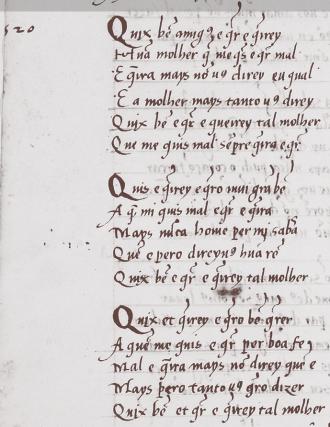 520
Quix bẽ amig9 e q̃r e q̃rrey
hũa molher q̃ me q̃s e q̃r mal
E q̃rra mays nõ u9 direy eu qual
E a molher mays tanto u9 direy
Quix bẽ e q̃r e querrey tal molher
Que me quis mal sẽpre q̃rra e q̃r
Quis e q̃rrey e q̃ro mui grã bẽ
A q̃ mi quis mal e q̃r e q̃rra
Mays nũca home per mi sabã
Quẽ e pero direyu9 hũa rẽ
Quix bẽ e q̃r e q̃rrey tal molher
Quix et q̃rrey e q̃ro bẽ q̃rer
A que me quis e q̃r per boa fe
Mal e q̃rra mays nõ direy que e
Mays pero tanto u9 q̃ro dizer
Quix bẽ et q̃r e q̃rrey tal molher